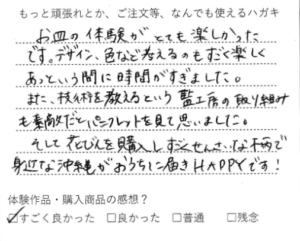 もっと頑張れとか、ご注文等、なんでも使えるハガキ
お皿の体験がとても楽しかった
です。デザイン、色など考えるのもすごく楽しく
あっという間に時間がすぎました。
また、技術を教えるという藍工房の取り組み
も素敵だとパンフレットを見て思いました。
そして花びんを購入し、すごくせんさいな柄で
身近な沖縄がおうちに届きHAPPYです！
体験作品・購入商品の感想？
☑すごく良かった □良かった □普通 □残念